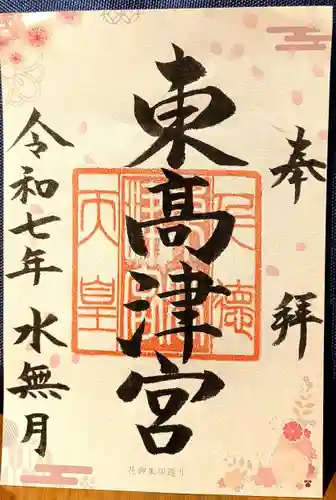 奉拝
東髙津宮
仁徳天皇
令和七年水無月
花御朱印巡り